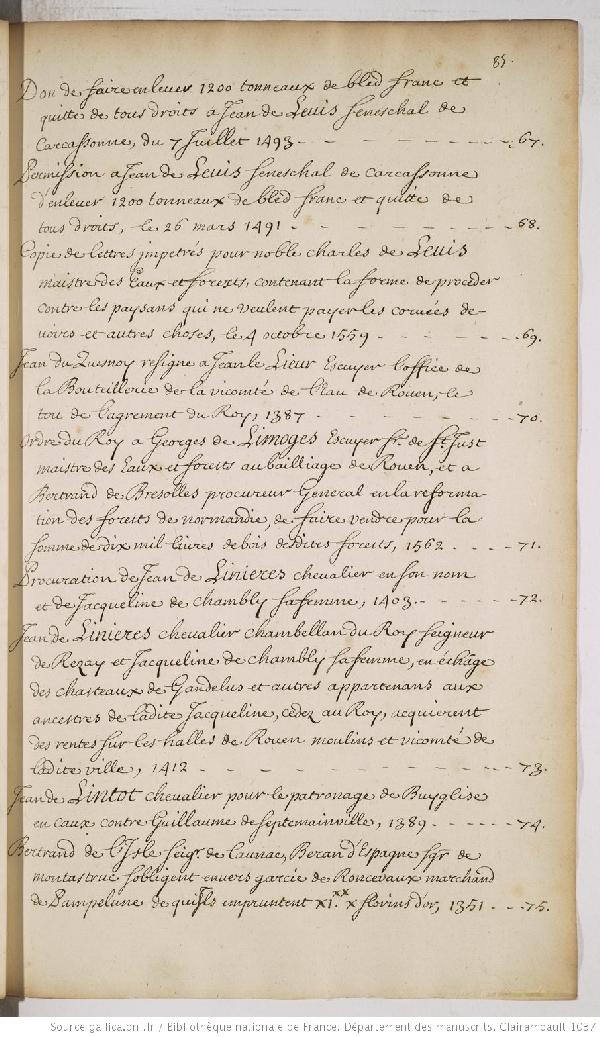 85.
Don de faire enlever 1200 tonneaux de bled franc et
quitte de tous droits a Jean de Levis seneschal de
Carcassonne, du 7 Juillet 1493 - - - - - - - - 67.
Permission a Jean de Levis seneschal de Carcassonne
d'enlever 1200 tonneaux de bled franc et quitte de
tous droits, le 26 mars 1491 - - - - - - - - 68.
Copie de lettres impetrés pour noble Charles de Levis
maistre des Eaux et forests, contenant la forme de proceder
contre les paysans qui ne veulent payer les corvées de
voires et autres choses, le 4 octobre 1559 - - - - - - 69.
Jean du Quesnoy resigne a Jean le Lieur Escuyer l'office de
la Bouteillerie de la vicomté de l'Eau de Rouen, le
tout de l'agrement du Roy, 1387 - - - - - - - - 70.
Ordre du Roy a Georges de Limoges Escuyer Sr. de St. Just
maistre des Eaux et forests au bailliage de Rouen, et a
Bertrand de Bresolles procureur General en la reforma-
tion des forests de normandie, de faire vendre pour la
somme de dix mil livres de bois desdites forests, 1562 - - - - 71.
Procuration de Jean de Linieres chevalier en son nom
et de Jacqueline de Chambly sa femme, 1403 - - - - - - 72.
Jean de Linieres chevalier chambellan du Roy seigneur
de Rezay et Jacqueline de Chambly sa femme, en échãge
des chasteaux de Gandelus et autres appartenans aux
ancestres de ladite Jacqueline, cedez au Roy, acquierent
des rentes sur les halles de Rouen moulins et vicomté de
ladite ville, 1412 - - - - - - - - - - 73.
Jean de Lintot chevalier pour le patronage de Buyglise
en caux contre Guillaume de Septemainville, 1389 - - - - - - 74.
Bertrand de l'Isle seigr. de Launac, Beran d'Espagne sgr. de
montastruc sobligent envers garcie de Roncevaux marchand
de Pampelune de quils empruntent xi.xx x florins d'or, 1351 - - - 75.
Source gallica.bnf.fr / Bibliothèque nationale de France. Département des manuscrits. Clairambault 1037